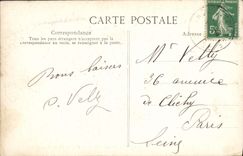 CARTE POSTALE
Correspondance
Adresse
Tous les pays étrangers n'acceptent pas la
correspondance au recto, se renseigner à la poste.
Mr Velty
36 avenue
de Clichy
Paris
Seine
Bons baisers